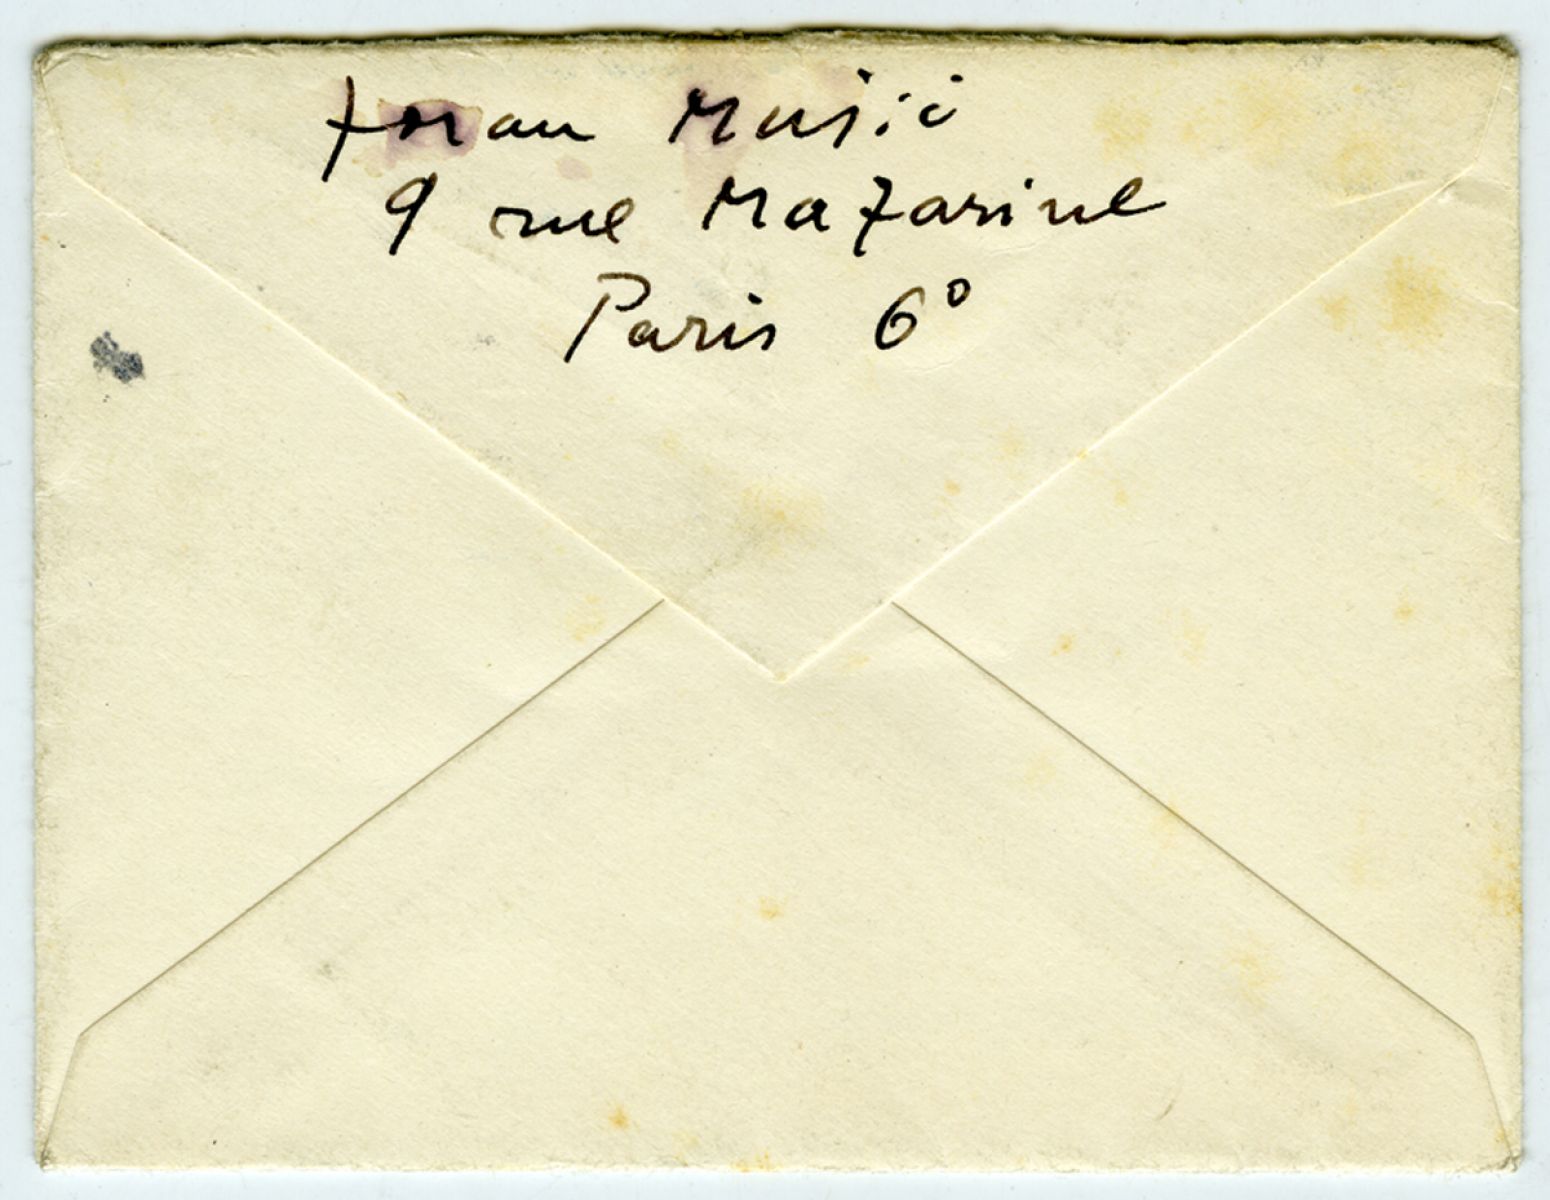 Zoran Mušič
9 rue Mazarine
Paris 6°